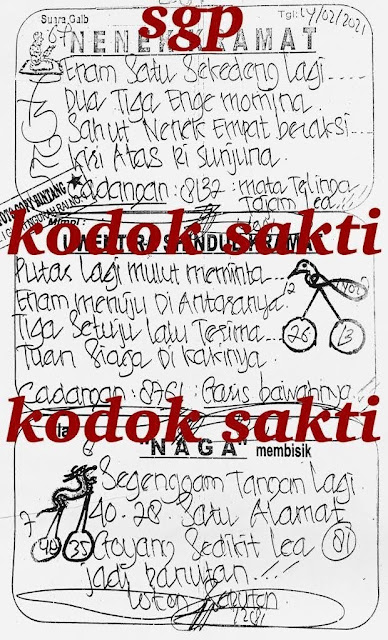 sgp
Suara Gaib
Tgl: 14/02/2021
NENEK KRAMAT
Enam Satu Sekedeng lagi....
Dua Tiga Enge momina.
Sahut Nenek Empat beraksi...
Kiri Atas Ri Sunjuna.
Cadangan: 8132: mata Telinga
Tajam Lea!!
Mimpi:
kodok sakti
Putar Lagi mulut meminta...
Enam menuju Di Antaranya
Tiga Setuju lalu Terima...
Tuan Siaga Di kakinya.
12
26
13
Cadangan: 8761: Garis bawahnya!!
kodok sakti
"NAGA" membisik
Segenggam Tangan Lagi
40-28 Satu Alamat
Goyang Sedikit Lea 81
jadi panutan!!!
7
40